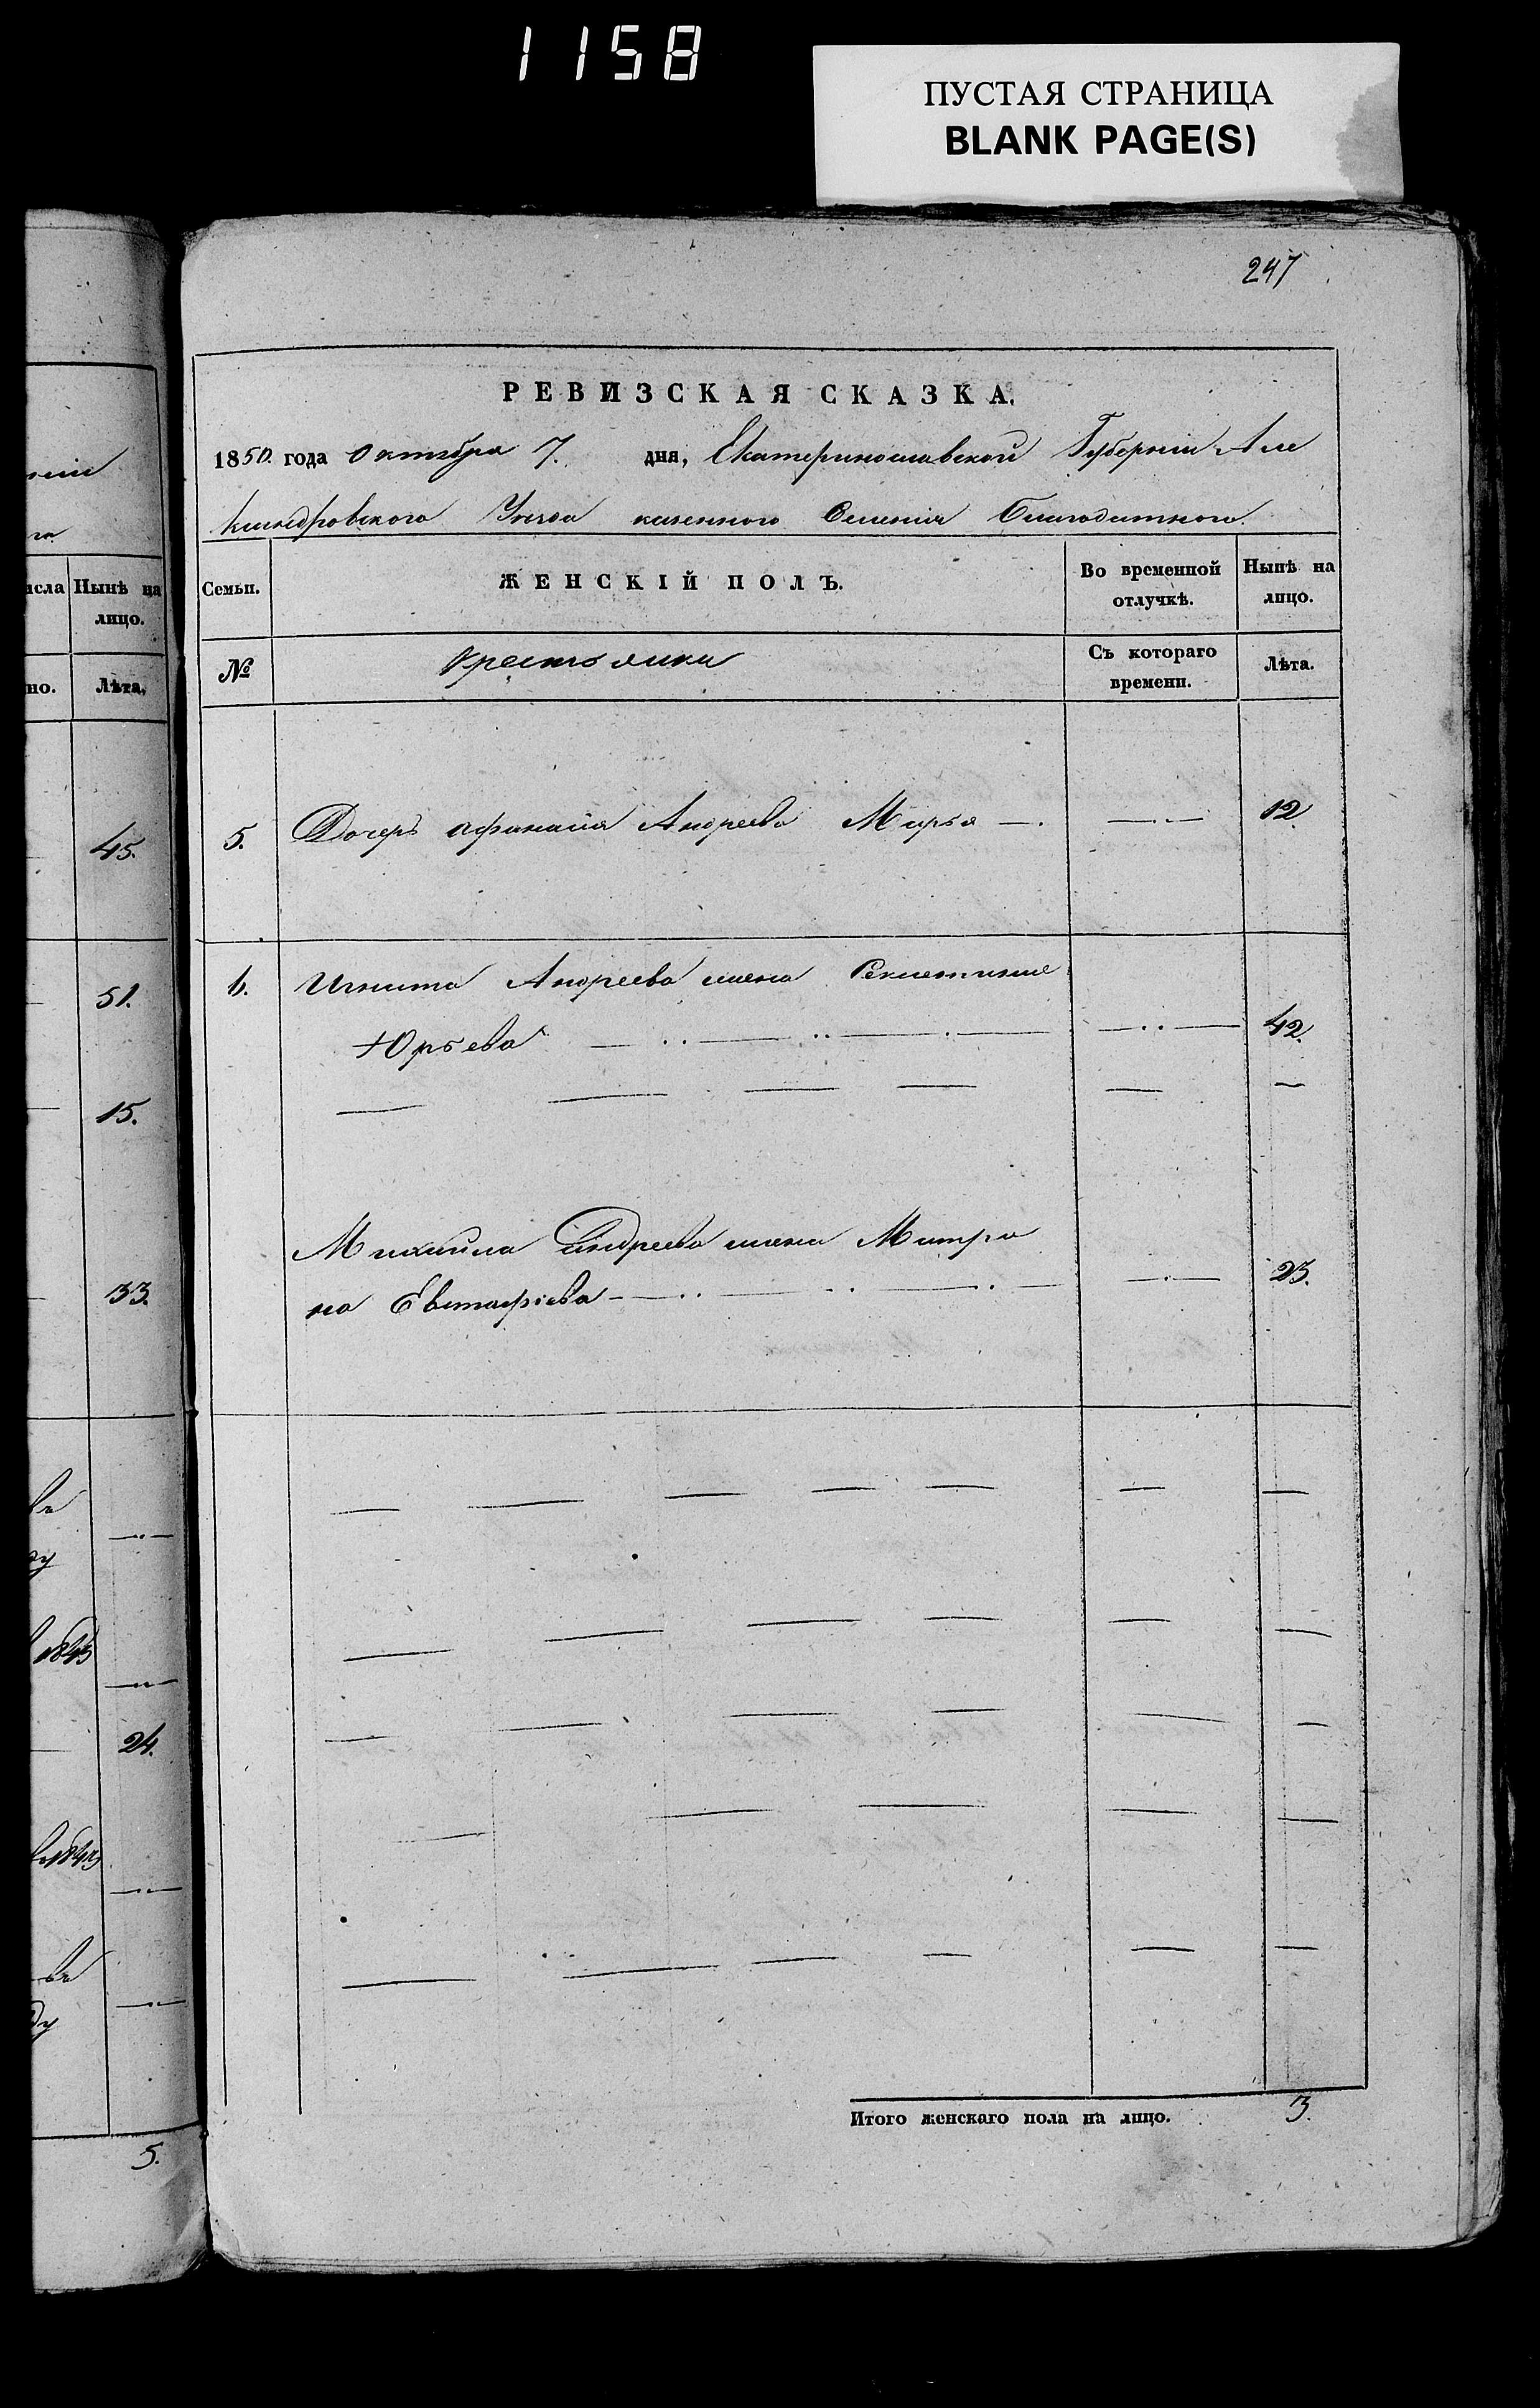 1158
ПУСТАЯ СТРАНИЦА
BLANK PAGE(S)
247
РЕВИЗСКАЯ СКАЗКА.
1850. года Октября 7. дня, Екатеринославской Губерніи Але
ксандровского Уезда казенного Селенія Благодатного.
исла
Нынѣ на лицо.
но.
Лѣта.
45.
51.
15.
33.
1843
24.
5.
Семьи.
ЖЕНСКІЙ ПОЛЪ.
Во временной отлучкѣ.
Нынѣ на лицо.
№
Крестьянки
Съ котораго времени.
Лѣта.
5. Дочерь Афанасія Андреева Марья — . — . — 12.
6. Игната Андреева жена
Юрьева — . . — . . — . — — . . — 42.
Михайла Андреева жена Матро
на Евстафіева — . . — . . — . . — — . — 23.
Итого женскаго пола на лицо. 3.